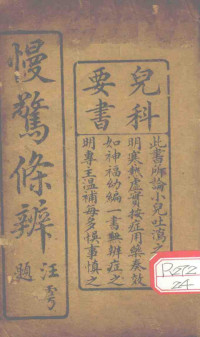 兒科
要書
此書所論小兒吐瀉之
明寒熱虛實按症用藥奏效
如神福幼編一書無辨症之
明專主温補每多悞事慎之
慢驚條辨
汪
題
R272
24